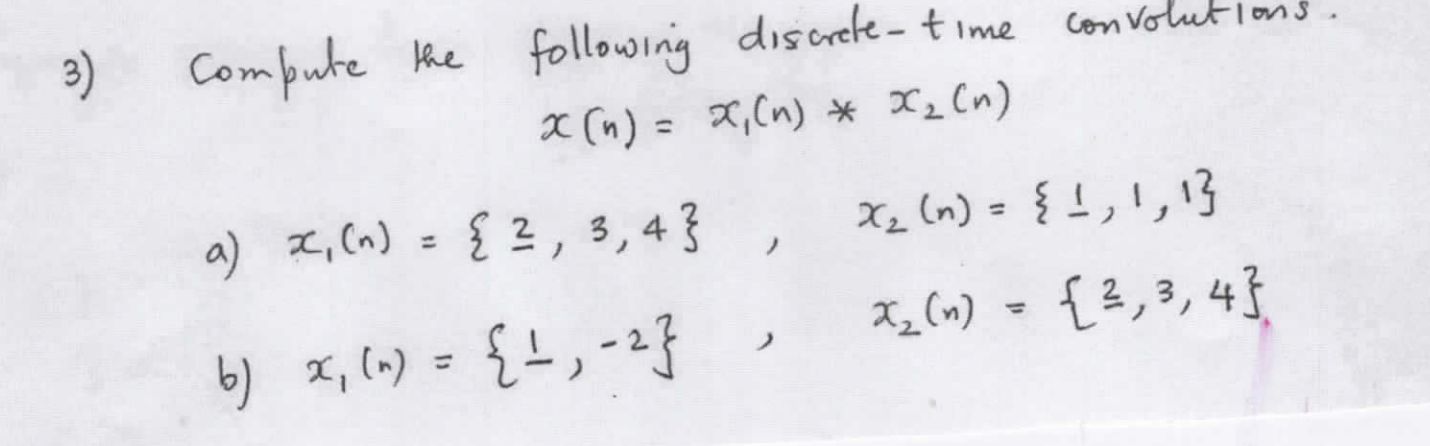 3) Compute the following discrete-time convolutions.
x(n) = x₁(n) * x₂(n)
a) x₁(n) = {2̲, 3, 4} , x₂(n) = {1̲, 1, 1}
b) x₁(n) = {1̲, -2} , x₂(n) = {2̲, 3, 4}